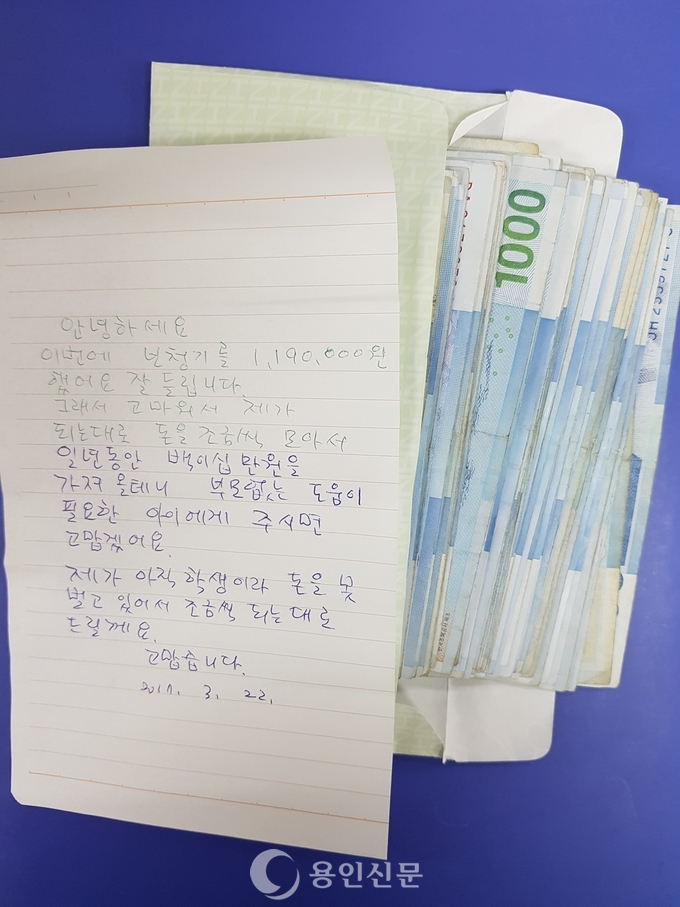 안녕하세요
이번에 보청기를 1,190,000원
했어요 잘 들립니다
그래서 고마워서 제가
되는대로 돈을 조금씩 모아서
일년동안 백이십만원을
가져올테니 부모없는 도움이
필요한 아이에게 주시면
고맙겠어요.
제가 아직 학생이라 돈을 못
벌고 있어서 조금씩 되는대로
드릴께요.
고맙습니다.
2017. 3. 22.
1000
용인신문